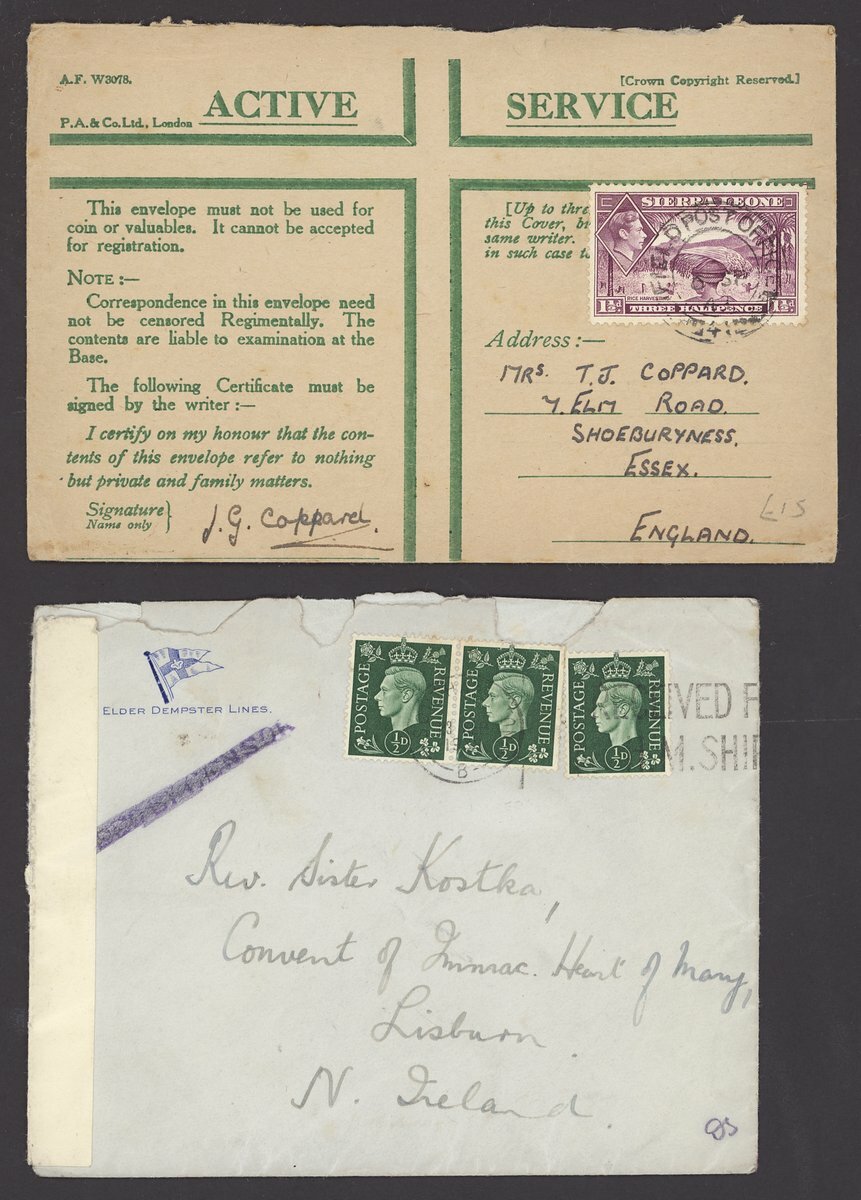 A.F. W3078.
[Crown Copyright Reserved.]
ACTIVE SERVICE
P.A. & Co. Ltd., London
This envelope must not be used for
coin or valuables. It cannot be accepted
for registration.
NOTE :—
Correspondence in this envelope need
not be censored Regimentally. The
contents are liable to examination at the
Base.
The following Certificate must be
signed by the writer :—
I certify on my honour that the con-
tents of this envelope refer to nothing
but private and family matters.
Signature
Name only
J. G. Coppard.
[Up to thre
this Cover, b
same writer.
in such case t
SIERRA LEONE
RICE HARVESTING
1½d THREE HALFPENCE 1½d
FIELD POST OFFICE
Address :—
MRS. T.J. COPPARD.
7. ELM ROAD.
SHOEBURYNESS.
ESSEX.
ENGLAND.
£15
ELDER DEMPSTER LINES.
POSTAGE REVENUE
½D
POSTAGE REVENUE
½D
POSTAGE REVENUE
½D
EIVED F
M. SHIP
Rev. Sister Kostka,
Convent of Immac. Heart of Mary,
Lisburn
N. Ireland.